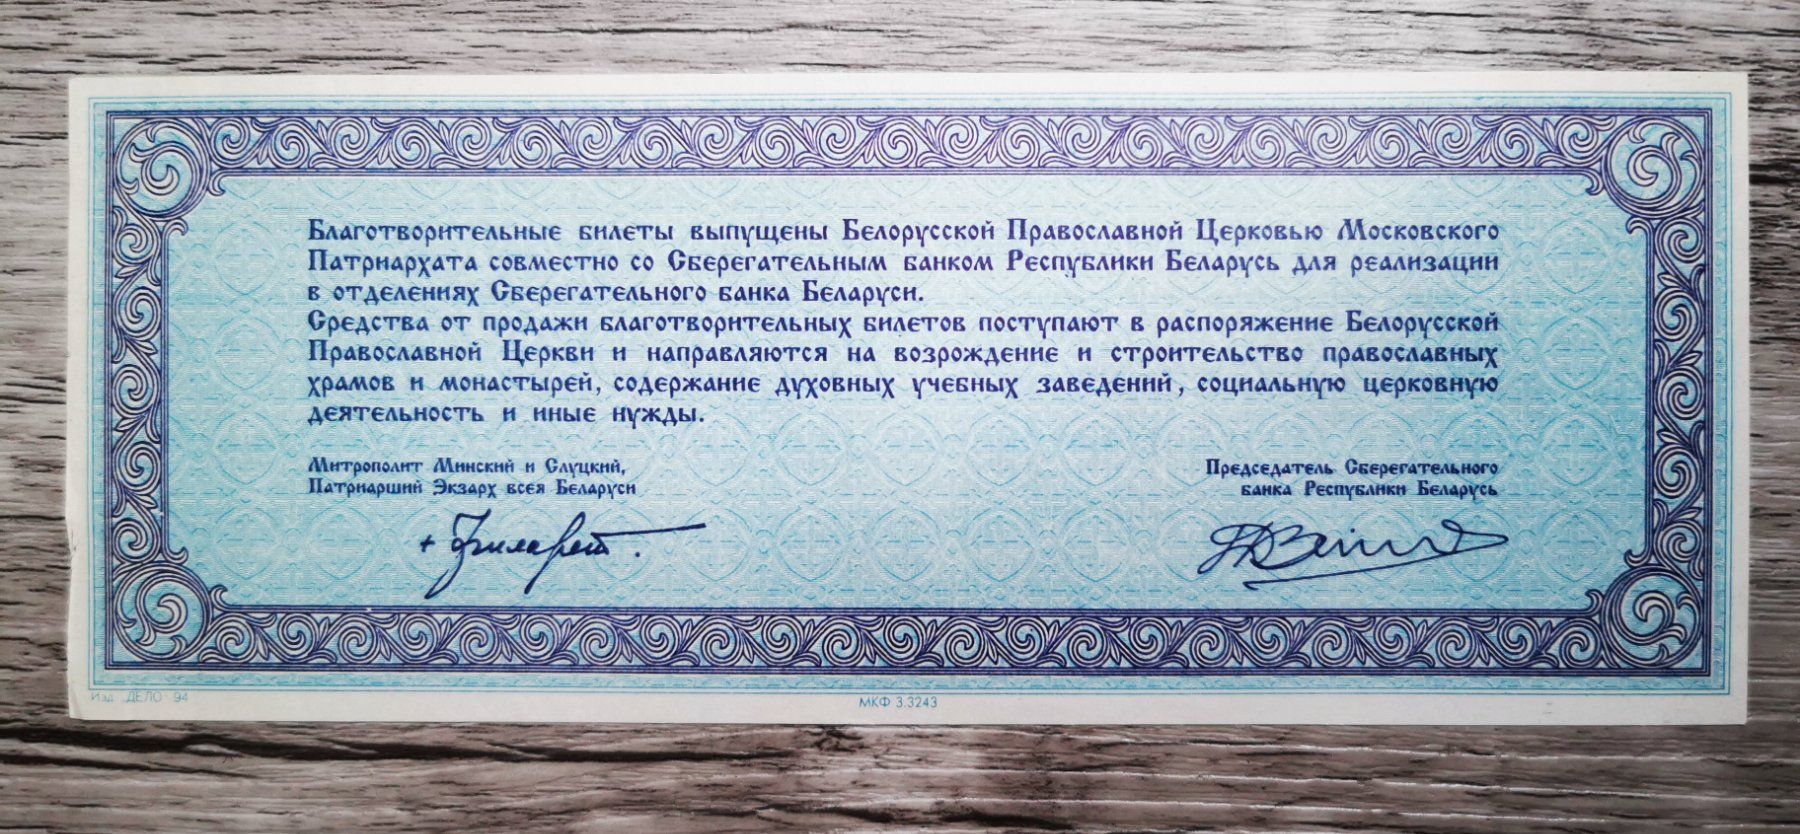 Благотворительные билеты выпущены Белорусской Православной Церковью Московского
Патриархата совместно со Сберегательным банком Республики Беларусь для реализации
в отделениях Сберегательного банка Беларуси.
Средства от продажи благотворительных билетов поступают в распоряжение Белорусской
Православной Церкви и направляются на возрождение и строительство православных
храмов и монастырей, содержание духовных учебных заведений, социальную церковную
деятельность и иные нужды.
Митрополит Минский и Слуцкий,
Патриарший Экзарх всея Беларуси
Председатель Сберегательного
банка Республики Беларусь
+ Филарет.
Изд. ДЕЛО 94
МКФ 3.3243